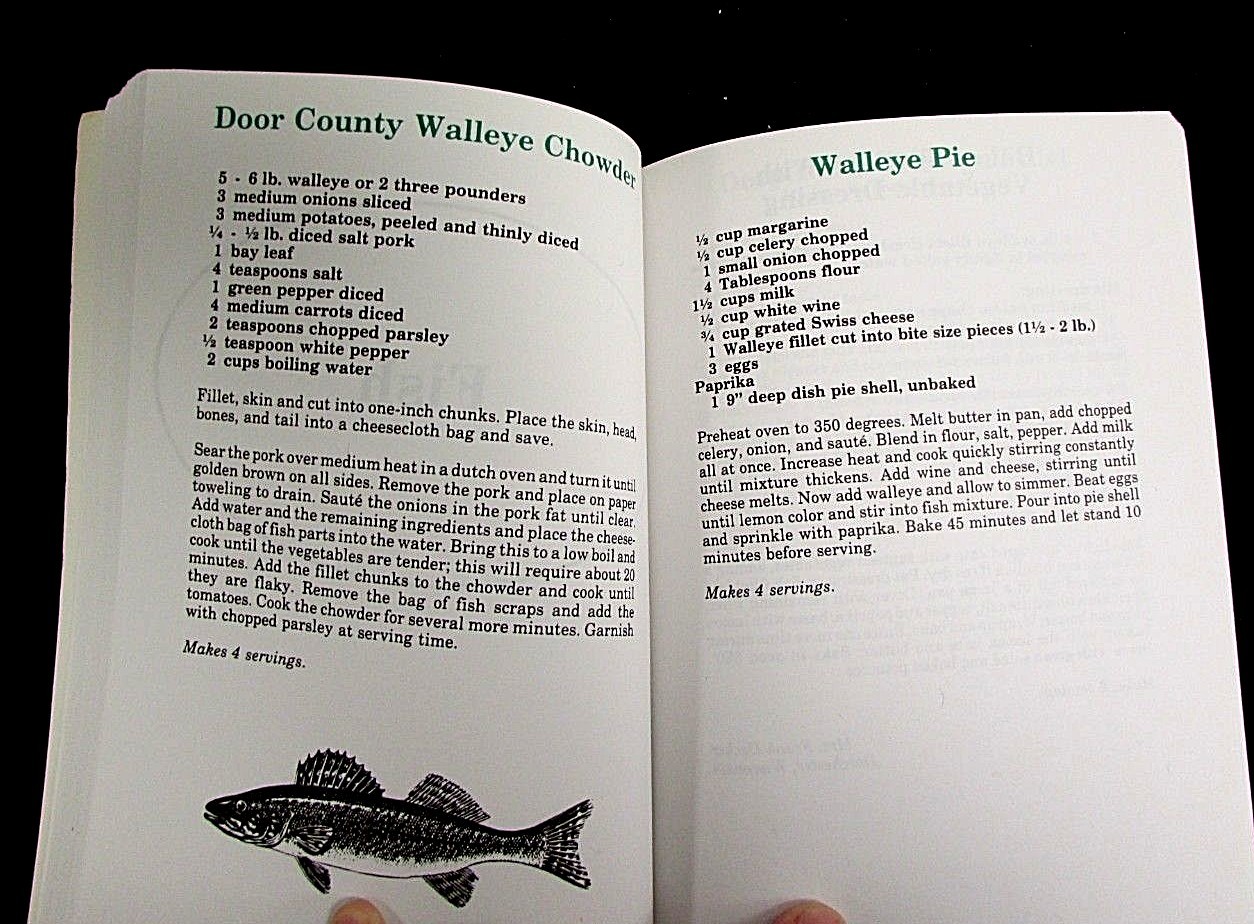 Door County Walleye Chowder
5 - 6 lb. walleye or 2 three pounders
3 medium onions sliced
3 medium potatoes, peeled and thinly diced
¼ - ½ lb. diced salt pork
1 bay leaf
4 teaspoons salt
1 green pepper diced
4 medium carrots diced
2 teaspoons chopped parsley
½ teaspoon white pepper
2 cups boiling water
Fillet, skin and cut into one-inch chunks. Place the skin, head,
bones, and tail into a cheesecloth bag and save.
Sear the pork over medium heat in a dutch oven and turn it until
golden brown on all sides. Remove the pork and place on paper
toweling to drain. Sauté the onions in the pork fat until clear.
Add water and the remaining ingredients and place the cheese-
cloth bag of fish parts into the water. Bring this to a low boil and
cook until the vegetables are tender; this will require about 20
minutes. Add the fillet chunks to the chowder and cook until
they are flaky. Remove the bag of fish scraps and add the
tomatoes. Cook the chowder for several more minutes. Garnish
with chopped parsley at serving time.
Makes 4 servings.
Walleye Pie
½ cup margarine
½ cup celery chopped
1 small onion chopped
4 Tablespoons flour
1½ cups milk
½ cup white wine
¾ cup grated Swiss cheese
1 Walleye fillet cut into bite size pieces (1½ - 2 lb.)
3 eggs
Paprika
1 9" deep dish pie shell, unbaked
Preheat oven to 350 degrees. Melt butter in pan, add chopped
celery, onion, and sauté. Blend in flour, salt, pepper. Add milk
all at once. Increase heat and cook quickly stirring constantly
until mixture thickens. Add wine and cheese, stirring until
cheese melts. Now add walleye and allow to simmer. Beat eggs
until lemon color and stir into fish mixture. Pour into pie shell
and sprinkle with paprika. Bake 45 minutes and let stand 10
minutes before serving.
Makes 4 servings.